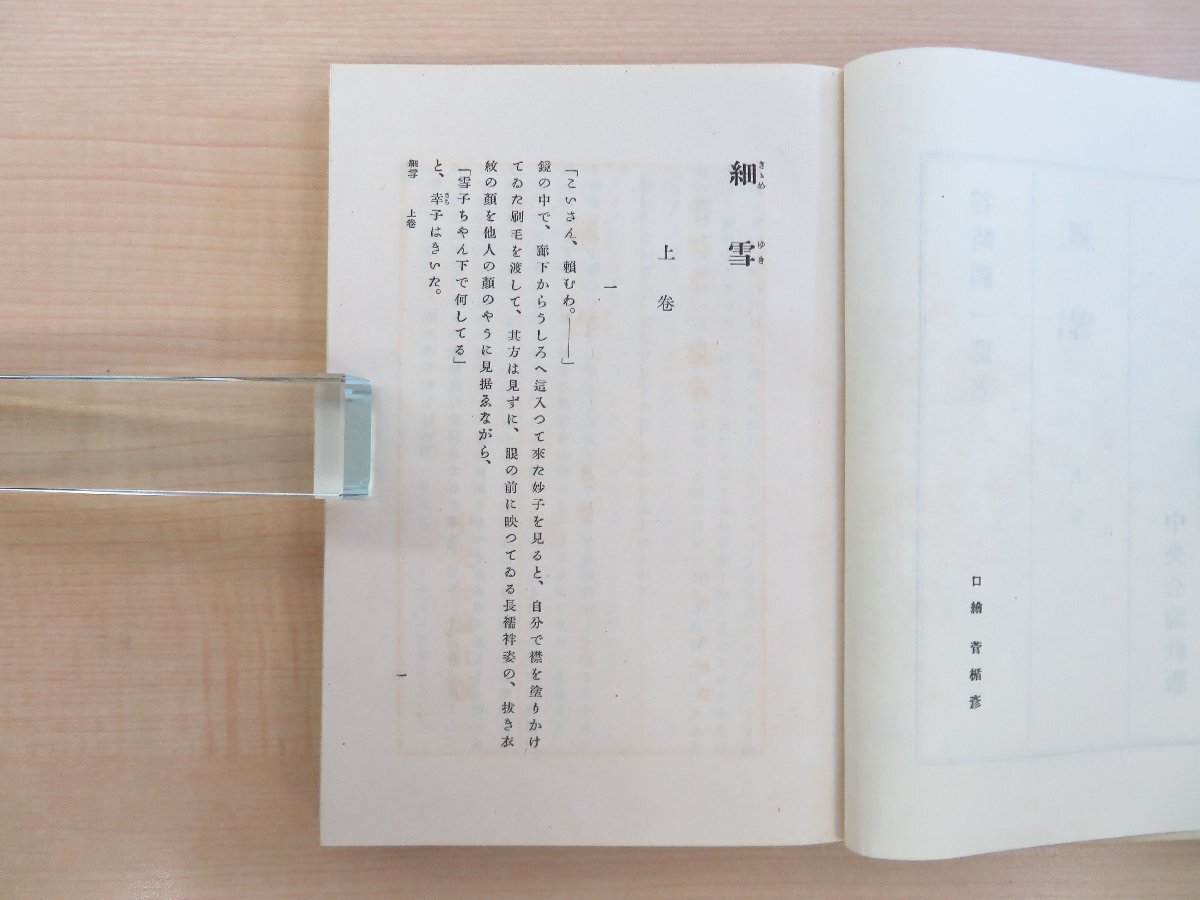 口繪　菅楯彦
細雪
さゝめゆき
上卷
一
「こいさん、頼むわ。――」
鏡の中で、廊下からうしろへ這入つて來た妙子を見ると、自分で襟を塗りかけ
てゐた刷毛を渡して、其方は見ずに、眼の前に映つてゐる長襦袢姿の、抜き衣
紋の顔を他人の顔のやうに見据ゑながら、
「雪子ちやん下で何してる」
と、幸子はきいた。
さち
細雪　上卷
一